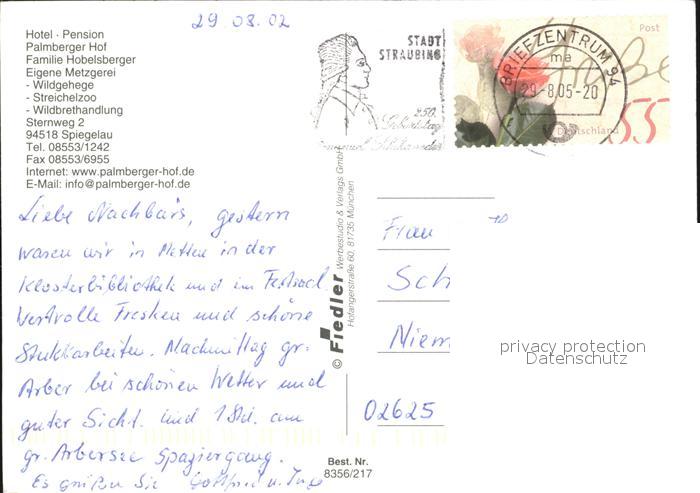 29.08.02
Hotel · Pension
Palmberger Hof
Familie Hobelsberger
Eigene Metzgerei
- Wildgehege
- Streichelzoo
- Wildbrethandlung
Sternweg 2
94518 Spiegelau
Tel. 08553/1242
Fax 08553/6955
Internet: www.palmberger-hof.de
E-Mail: info@palmberger-hof.de
STADT
STRAUBING
250.
Geburtstag
Post
BRIEFZENTRUM 94
ma
29-8.05-20
Deutschland
55
Liebe Nachbars, gestern
waren wir in Metten in der
Klosterbibliothek und im Festsaal.
Wertvolle Fresken und schöne
Stukkarbeiten. Nachmittag gr.
Arber bei schönen Wetter und
guter Sicht. Und 1 Std. am
gr. Arbersee Spaziergang.
Es grüßen Sie Gottfried u. Inge
© Fiedler Werbestudio & Verlags GmbH
Hofangerstraße 60, 81735 München
Frau
Sch
Niem
02625
privacy protection
Datenschutz
Best. Nr.
8356/217